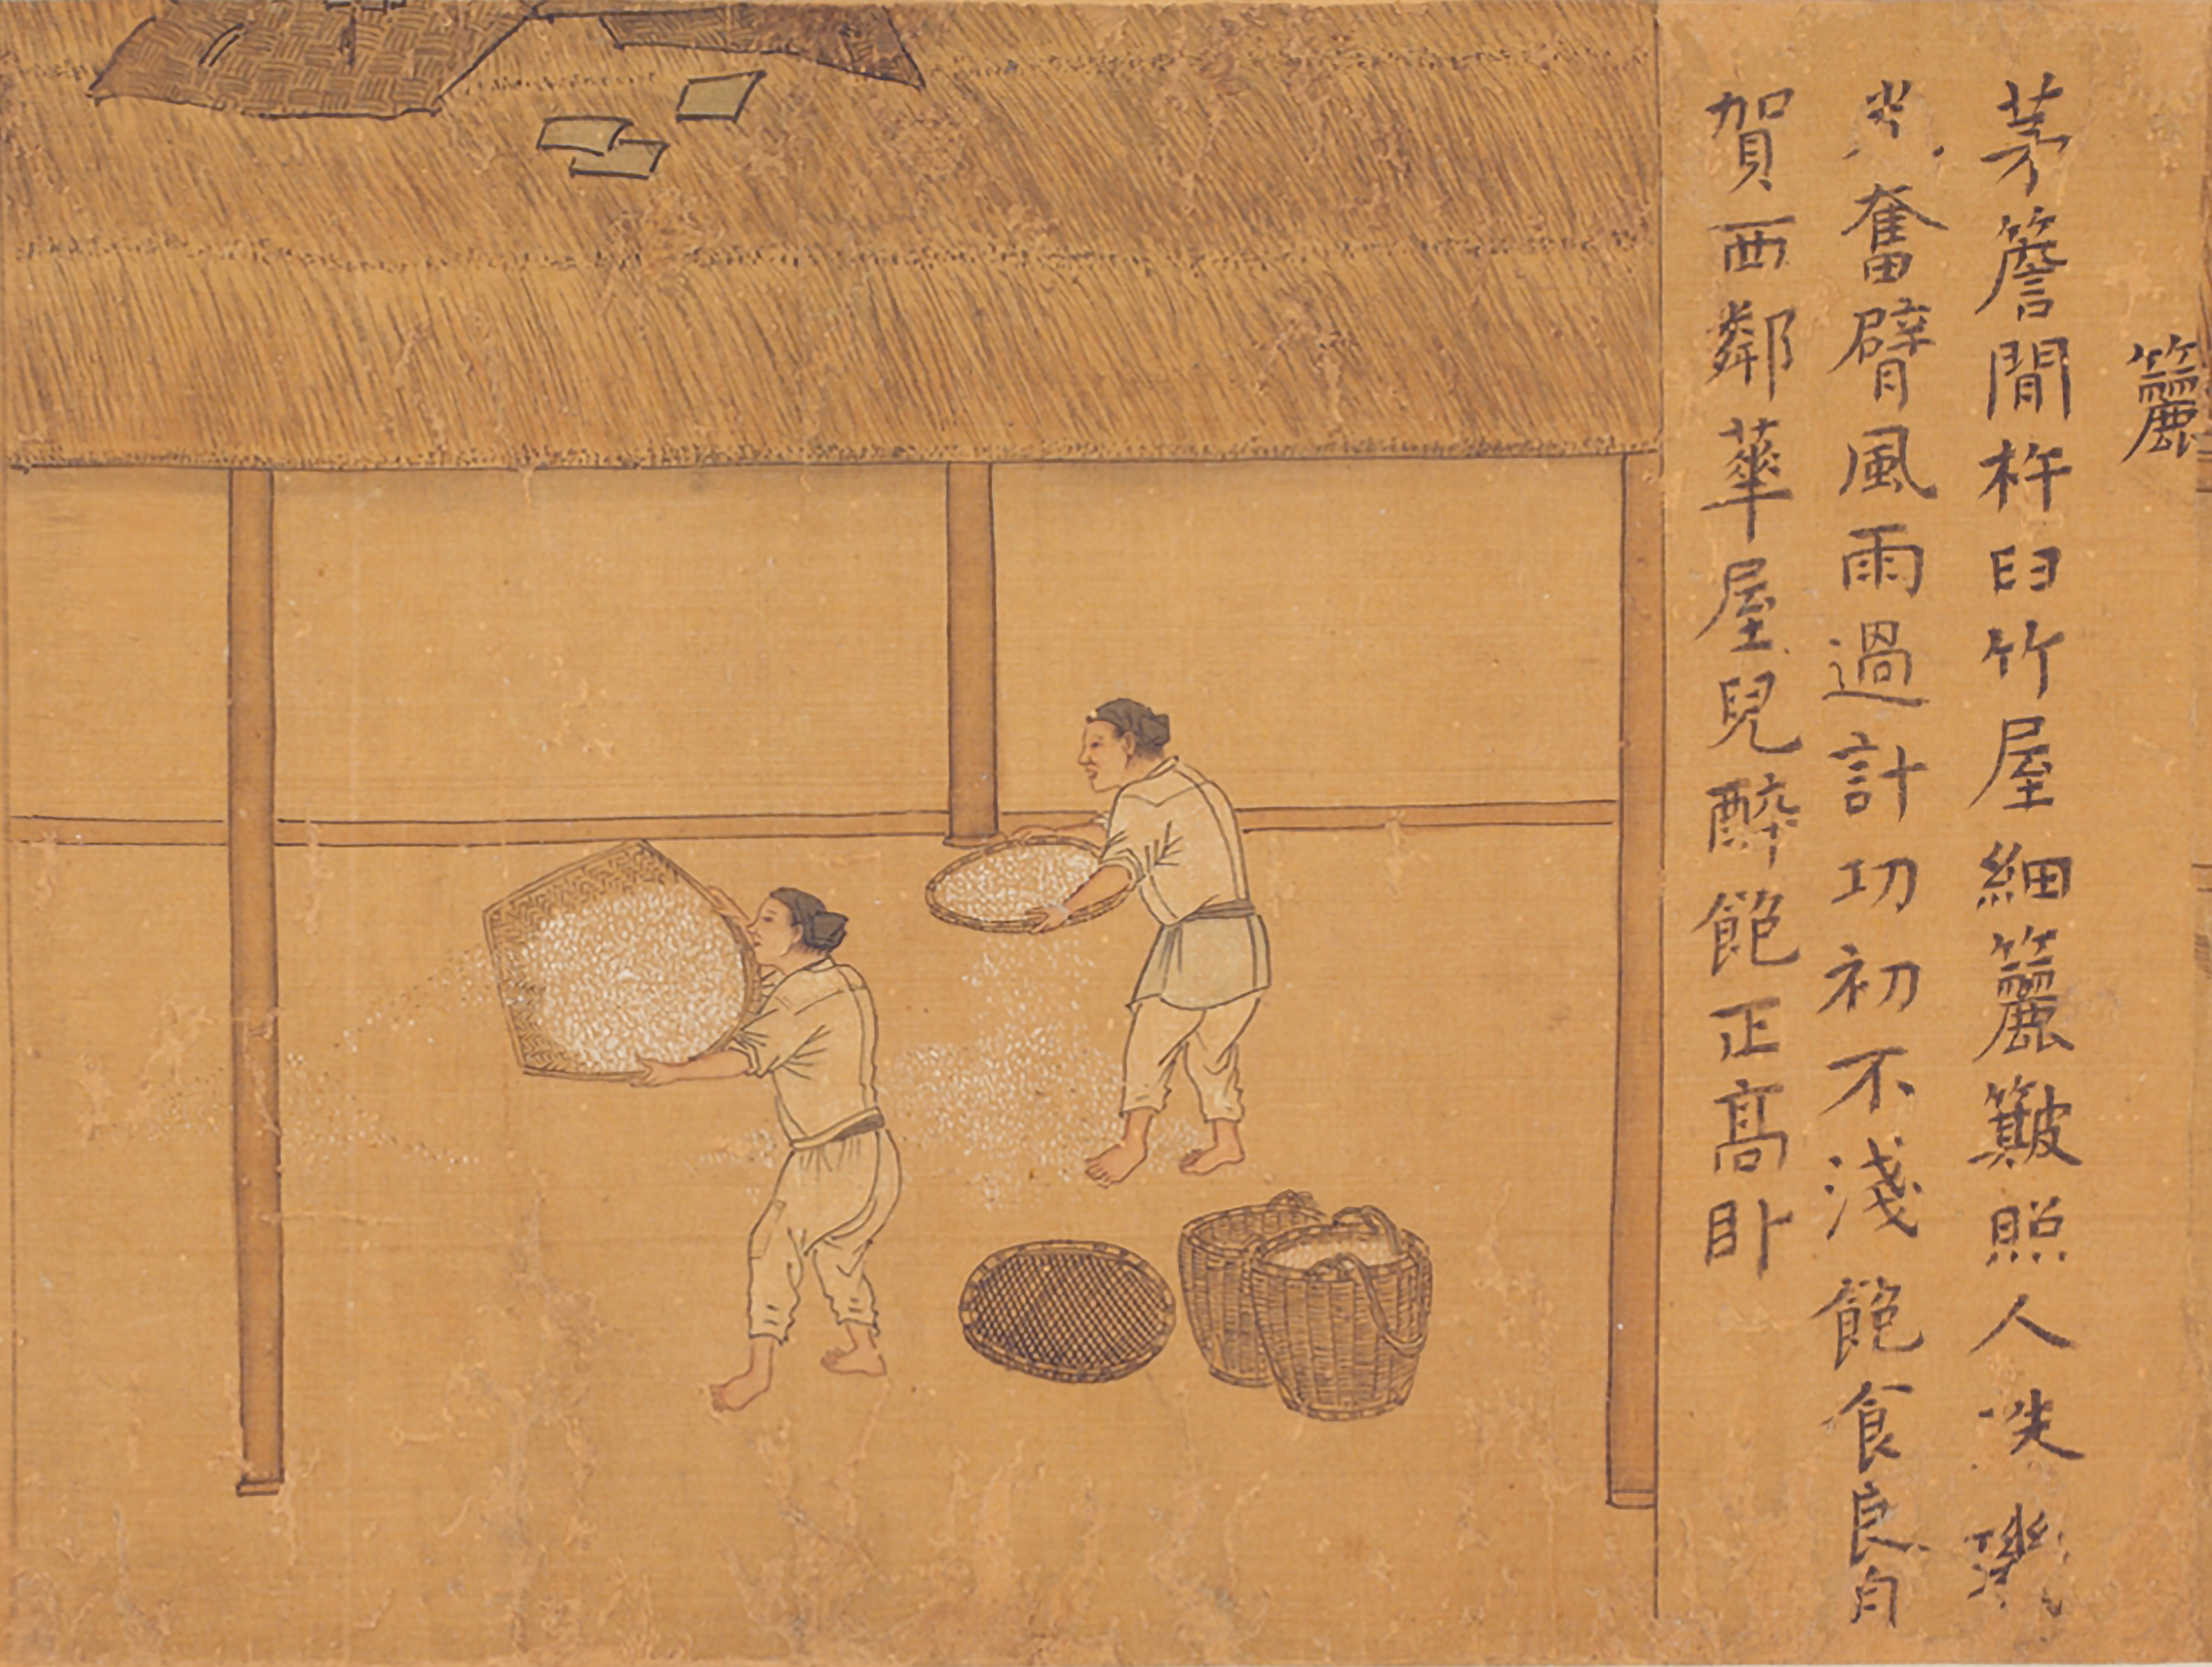 籭
茅簷閒杵臼竹屋細籭簸照人珠璣
光奮臂風雨過計功初不淺飽食良自
賀西鄰華屋兒醉飽正髙卧